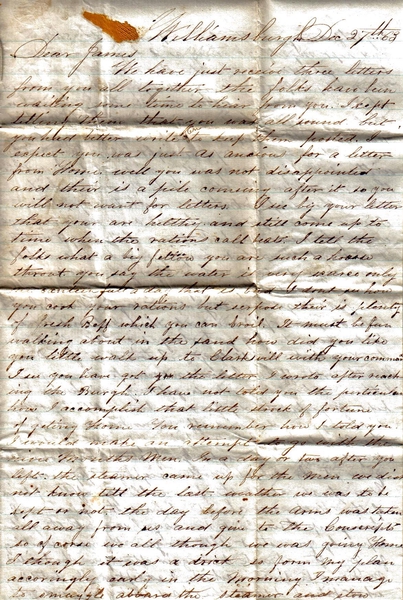 Williamsburgh Dec 27th 63
Dear James
We have just receive three letters
from you all together the folks have bein
waiting some time to hear from you I kept
telling them that you was all sound but
expect you was just as anxious for a letter
from Home well you was not disappointed
and their is a pile coming after it so you
will not want for letters I see by your letter
that you are helthy and still come up to
time when the rations call beats I tell the
folks what a big fellow you are such a hoarse
throat you say the water is very scarce only
you cook your rations but serious their is plenty
of fresh Beff which you can boil It must be fun
walking about in the sand how did you like
you little walk up to Clarksvill with your command
I see you han't got the letter I wrote after reach
ing the Burgh I have not told you the particulars
how I accomplist that little stock of fortune
of geting Home You remember how I told you
I would make an attempt
left the steamer came up for the men we did
not know till the last wether we was to be
kept or not the day before the arms was taken
all away from us and give to the Conscripts
so of course all thought I was going Home
I though it was a trick so form my plan
accordingly early in the morning I manage
to smuggle aboard the steamer and stow